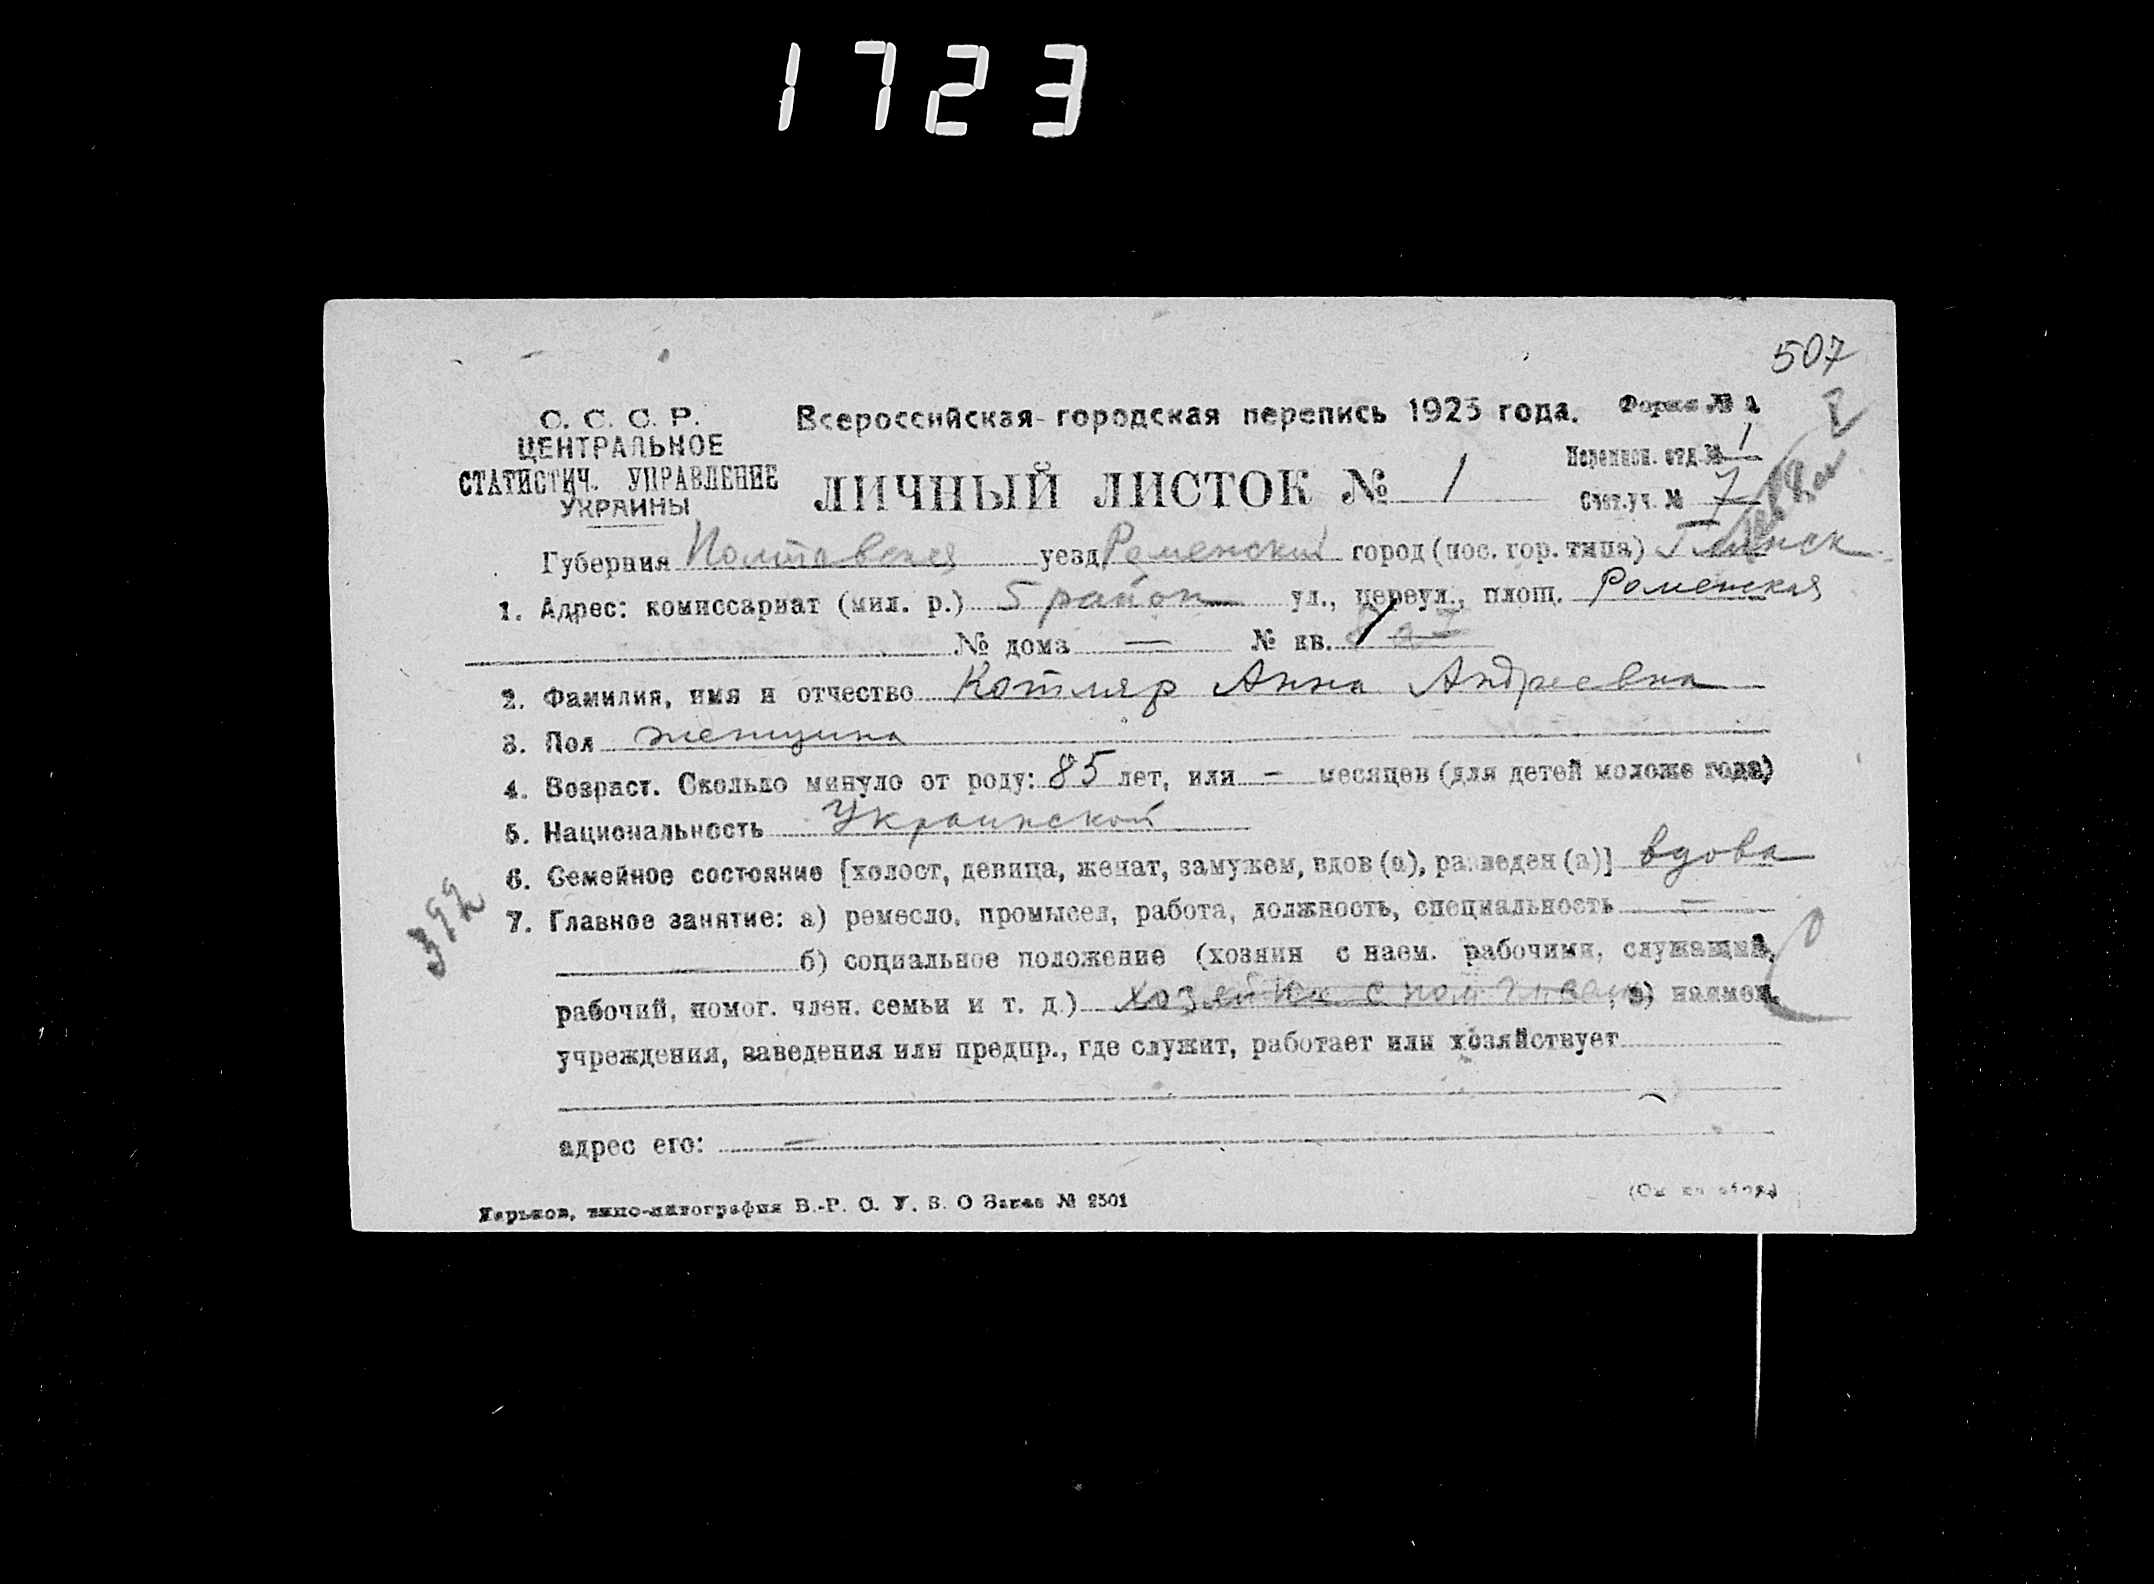 1723
507
С. С. С. Р.
ЦЕНТРАЛЬНОЕ
СТАТИСТИЧ. УПРАВЛЕНИЕ
УКРАИНЫ
Всероссийская городская перепись 1923 года.
Форма № 2
ЛИЧНЫЙ ЛИСТОК № 1
Переписн. отд. № 1
Счет. уч. № 7
Губерния Полтавская уезд Роменский город (пос. гор. типа) Глинск
1. Адрес: комиссариат (мил. р.) 5 район ул., переул., площ. Роменская
№ дома — № кв.
2. Фамилия, имя и отчество Котляр Анна Андреевна
3. Пол женщина
4. Возраст. Сколько минуло от роду: 85 лет, или — месяцев (для детей моложе года)
5. Национальность Украинской
6. Семейное состояние [холост, девица, женат, замужем, вдов (а), разведен (а)] вдова
7. Главное занятие: а) ремесло, промысел, работа, должность, специальность —
б) социальное положение (хозяин с наем. рабочими, служащий,
рабочий, помог. член. семьи и т. д.) хозяйка с пом. ; в) наимен.
учреждения, заведения или предпр., где служит, работает или хозяйствует
адрес его: —
Харьков, типо-литография В.-Р. О. У. В. О Заказ № 2501
(См. на обор.)
392